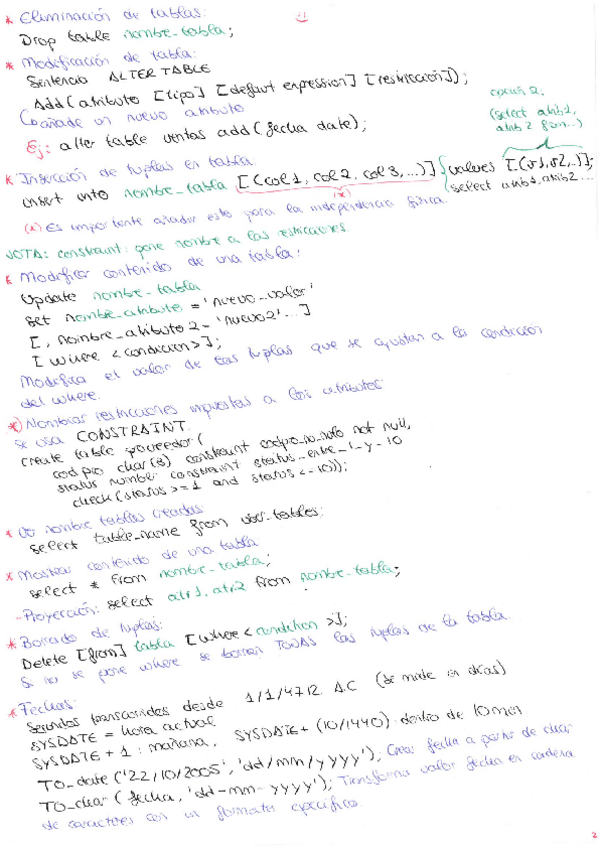 * Eliminación de tablas:
Drop table nombre_tabla;
* Modificación de tabla:
Sentencia ALTER TABLE
Add (atributo [tipo] [default expression] [restricción]);
añade un nuevo atributo
Ej: alter table ventas add (fecha date);
opción 2:
(select atrib1,
atrib2 from...)
* Inserción de tuplas en tabla.
insert into nombre_tabla [(col1, col2, col3, ...)] { values [(v1, v2, ..)];
select atrib1, atrib2 ...
(*)
(*) Es importante añadir esto para la independencia física.
NOTA: constraint: pone nombre a las restricciones
* Modificar contenido de una tabla:
Update nombre_tabla
Set nombre_atributo = 'nuevo_valor'
[, nombre_atributo2 = 'nuevo2'...]
[where <condicion>];
Modifica el valor de las tuplas que se ajustan a la condición
del where.
*) Nombrar restricciones impuestas a los atributos
Se usa CONSTRAINT.
create table proveedor (
codpro char(8) constraint codpro_no_nulo not null,
status number constraint status_entre_1_y_10
check (status >= 1 and status <= 10));
* nombre tablas creadas:
select table_name from user_tables;
* Mostrar contenido de una tabla
select * from nombre_tabla;
- Proyección: select atr1, atr2 from nombre_tabla;
* Borrado de tuplas:
Delete [from] tabla [where <condicion>];
Si no se pone where se borran TODAS las tuplas de la tabla.
* Fechas:
Segundos transcurridos desde 1/1/4712 A.C (Se mide en días)
SYSDATE = hora actual
SYSDATE + 1 : mañana, SYSDATE + (10/1440) dentro de 10 min
TO_date ('22/10/2005', 'dd/mm/yyyy'); Crea fecha a partir de char
TO_char (fecha, 'dd-mm-yyyy'); Transforma valor fecha en cadena
de caracteres con un formato específico.
2